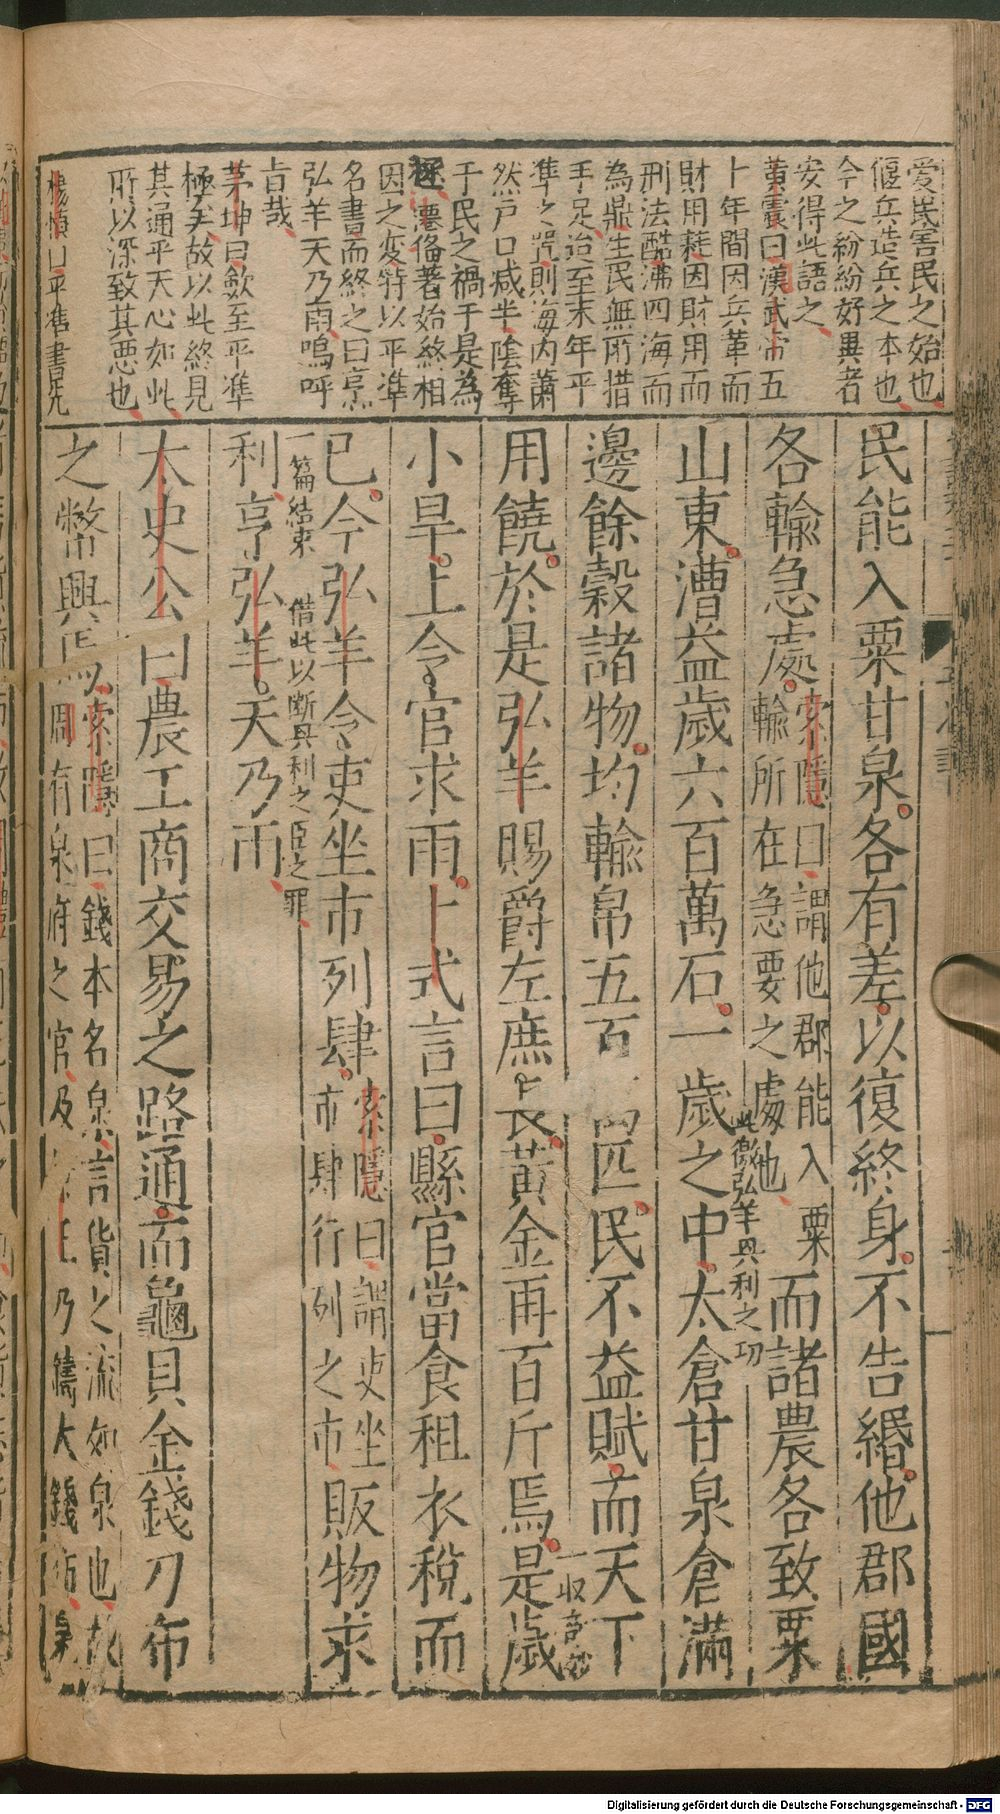 愛民害民之始也
偃兵造兵之本也
今之紛紛好異者
安得此語之
黃震曰漢武帝五
十年間因兵革而
財用耗因財用而
刑法酷沸四海而
為鼎生民無所措
手足迨至末年平
準之咒則海內蕭
然戶口減半陰奪
于民之禍于是為
極遷備著始終相
因之変特以平準
名書而終之曰烹
弘羊天乃雨嗚呼
旨哉
茅坤曰歛至平準
極矣故以此終見
其通平天心如此
所以深致其惡也
楊慎曰平準書先
民能入粟甘泉各有差以復終身不告緡他郡國
各輸急處索隱曰謂他郡能入粟
輸所在急要之處也而諸農各致粟
山東漕益歲六百萬石一歲之中太倉甘泉倉滿
此微弘羊興利之功
邊餘穀諸物均輸帛五百匹民不益賦而天下
用饒於是弘羊賜爵左庶長黃金再百斤焉是歲
一收音妙
小旱上令官求雨卜式言曰縣官當食租衣稅而
已今弘羊令吏坐市列肆索隱曰謂吏坐
市肆行列之市販物求
一篇結束 借此以斷興利之臣之罪
利亨弘羊天乃雨
太史公曰農工商交易之路通而龜貝金錢刀布
之幣興焉索隱曰錢本名泉言貨之流如泉也故
周有泉府之官及王乃鑄大錢布泉
Digitalisierung gefördert durch die Deutsche Forschungsgemeinschaft - DFG